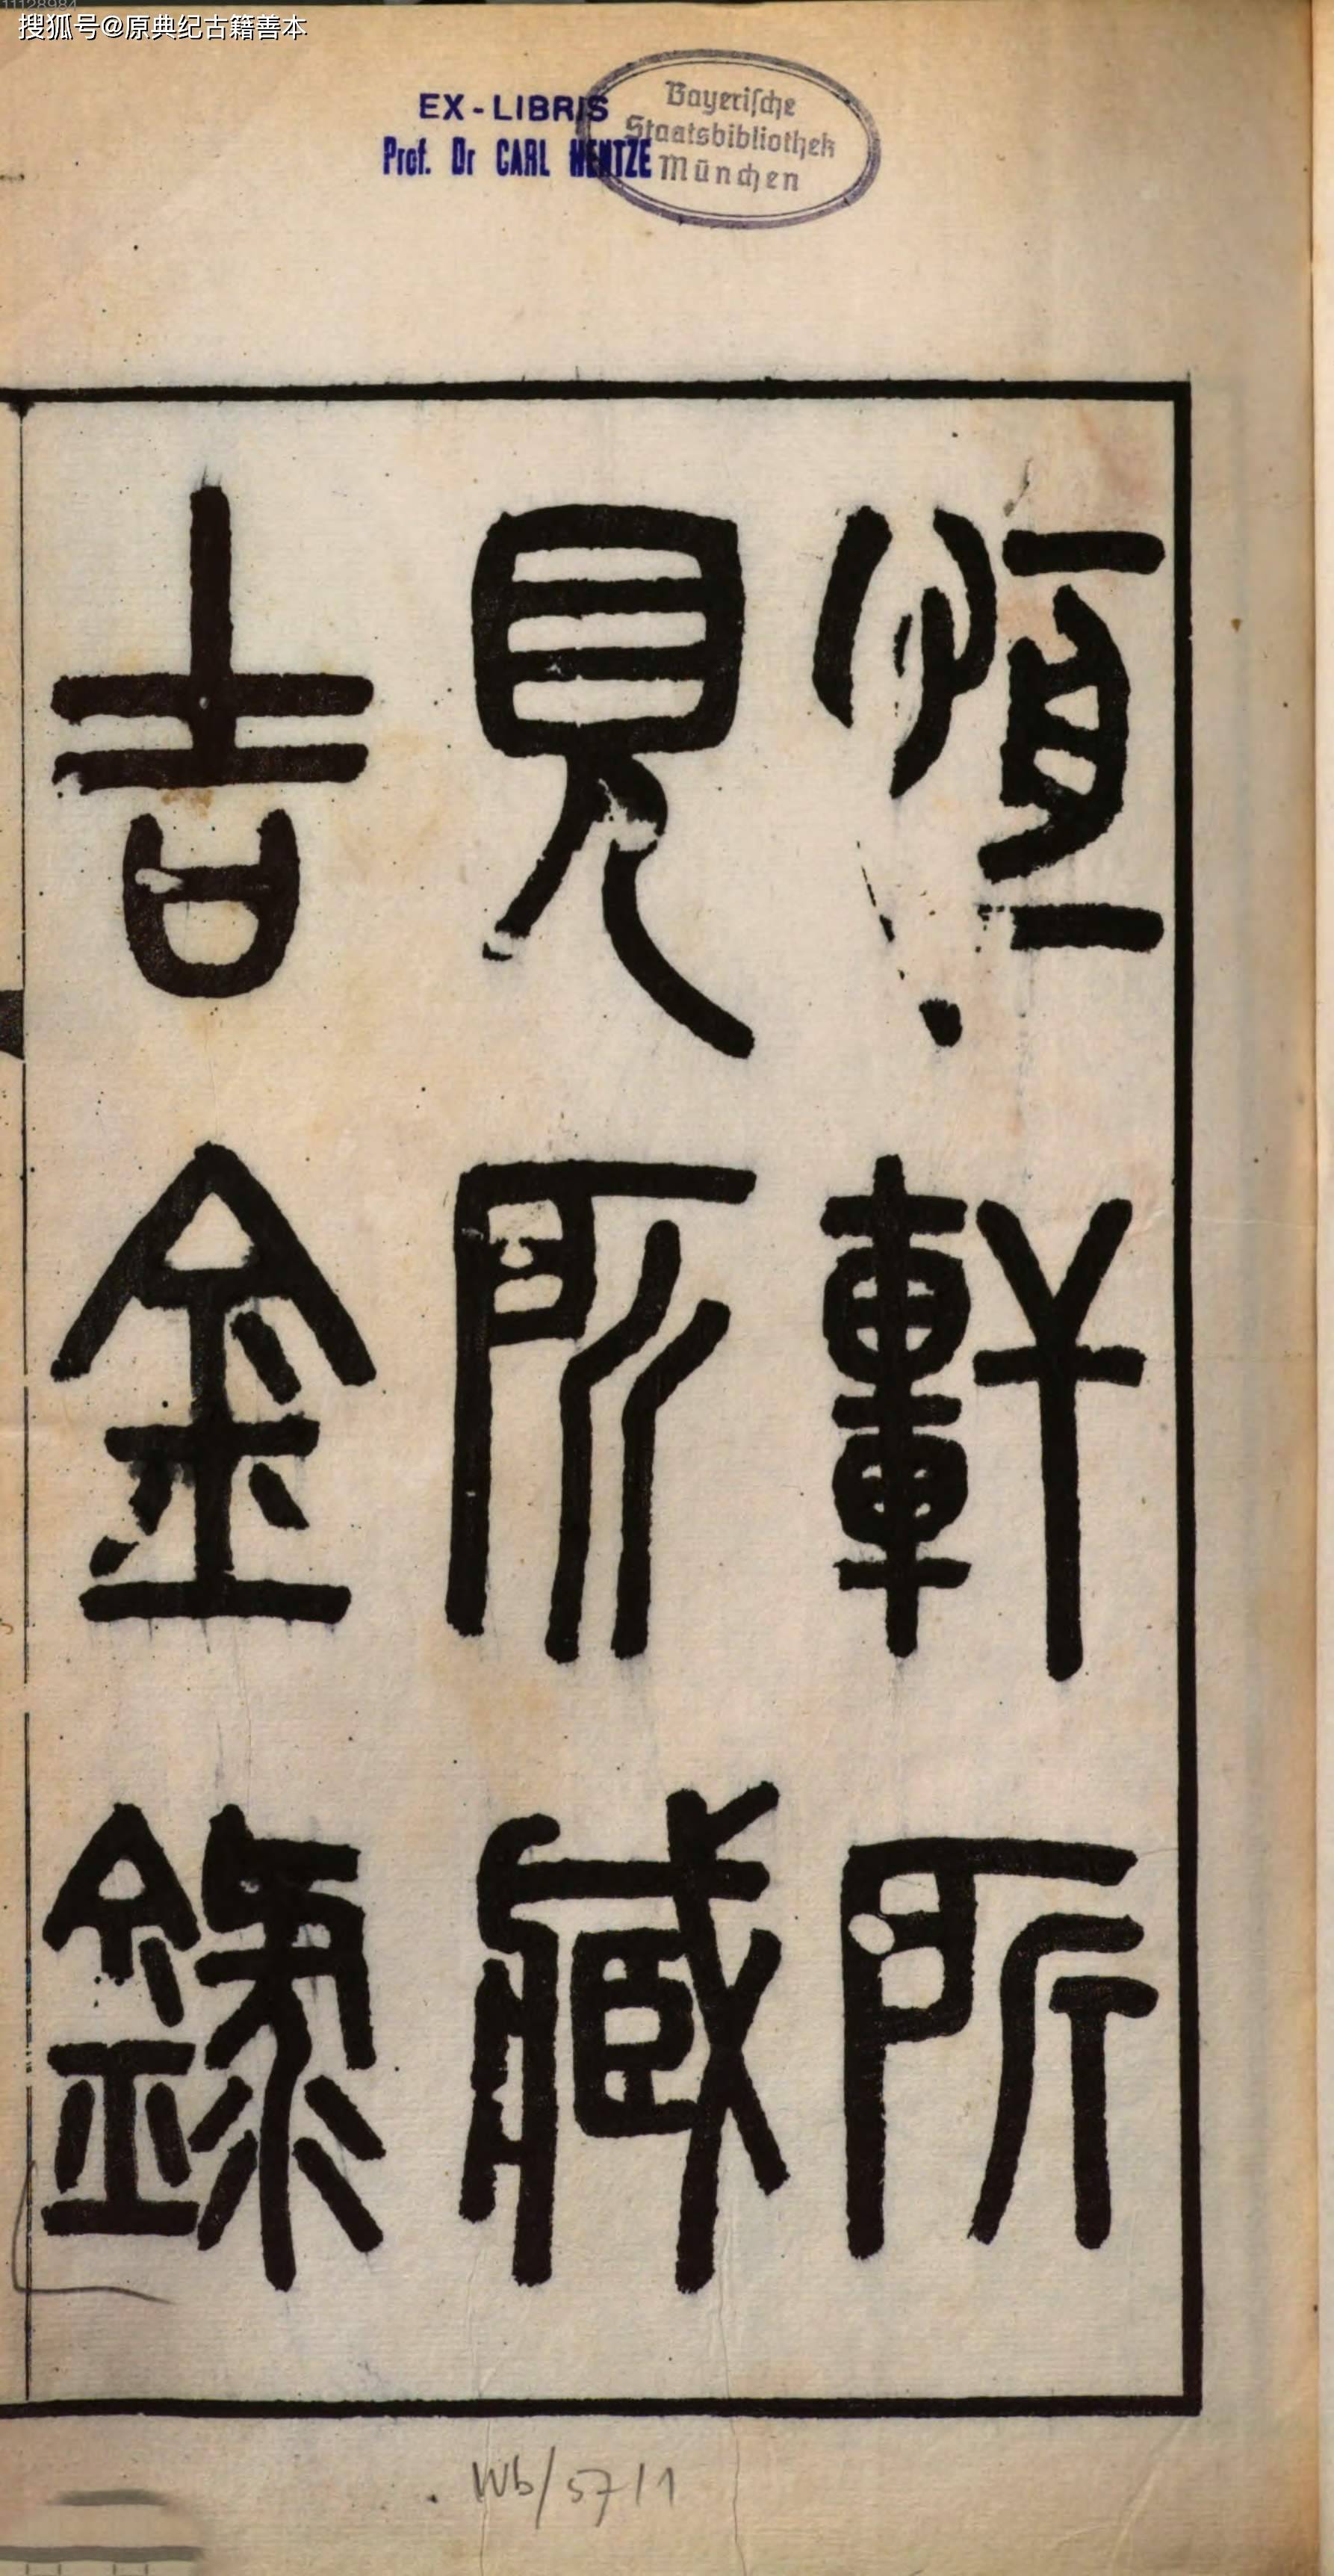 11128984
搜狐号@原典纪古籍善本
EX-LIBRIS
Prof. Dr CARL HENTZE
Bayerische
Staatsbibliothek
München
恆軒所
見所藏
吉金錄
Wb/5711